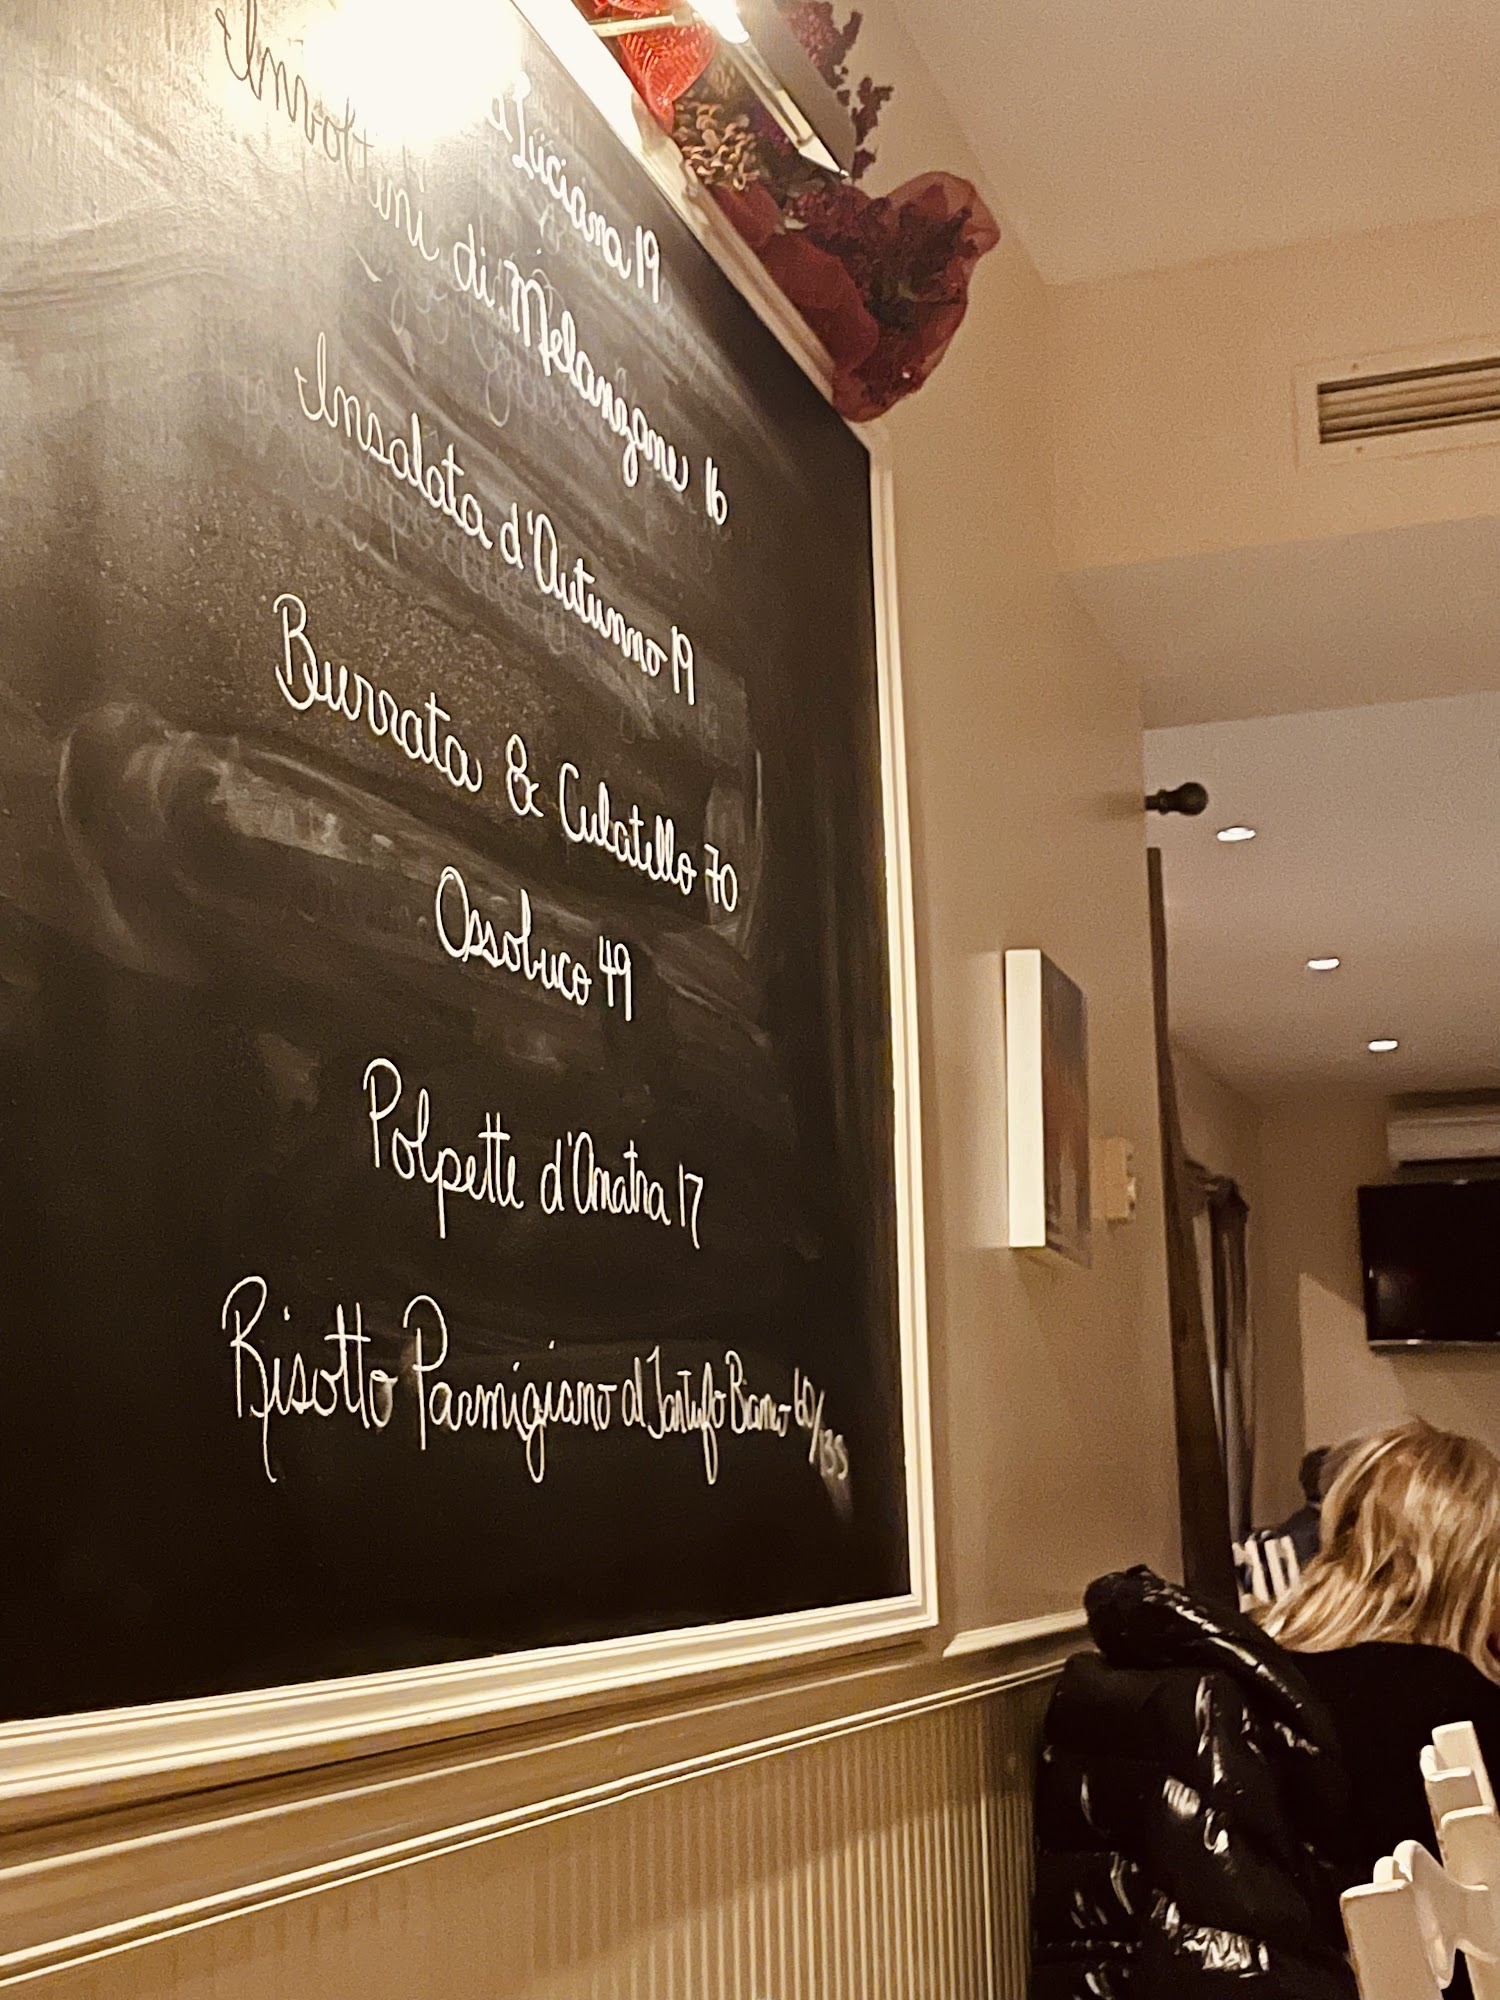 Luciana 19
Involtini di Melanzane 16
Insalata d'Autunno 19
Burrata & Culatello 70
Ossobuco 49
Polpette d'Anatra 17
Risotto Parmigiano al Tartufo Bianco 60/135